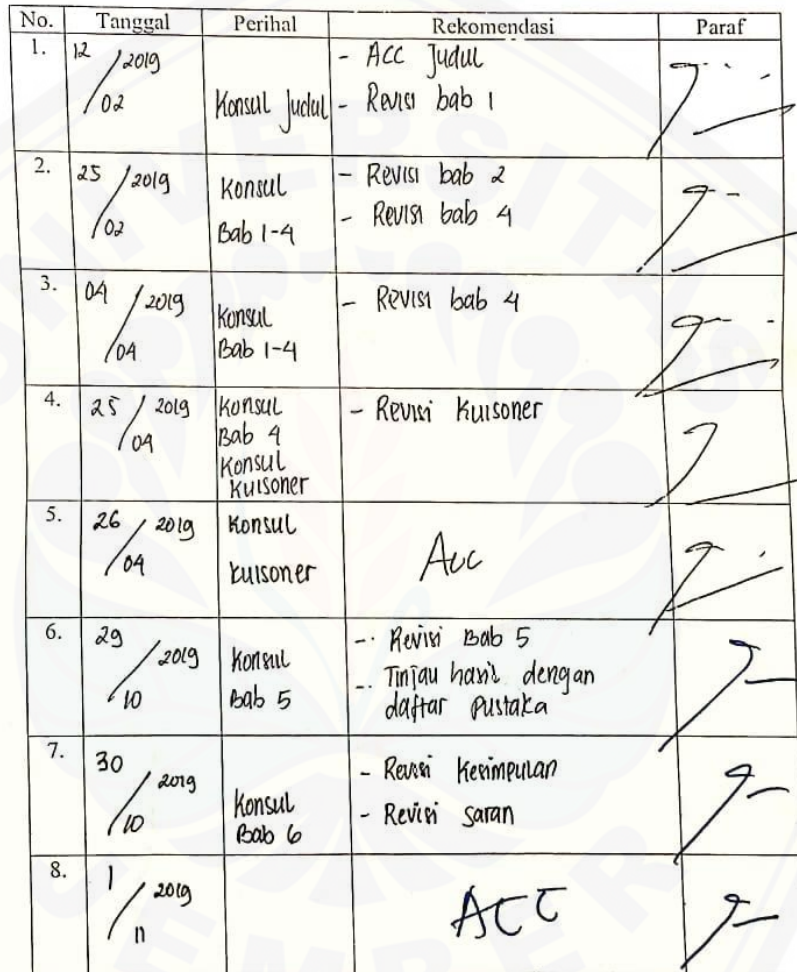 No. Tanggal Perihal Rekomendasi Paraf
1. 12/02 2019 Konsul Judul - ACC Judul
- Revisi bab 1
2. 25/02 2019 Konsul Bab 1-4 - Revisi bab 2
- Revisi bab 4
3. 04/04 2019 Konsul Bab 1-4 - Revisi bab 4
4. 25/04 2019 Konsul Bab 4 - Revisi Kuisoner
Konsul Kuisoner
5. 26/04 2019 Konsul kuisoner Acc
6. 29/10 2019 Konsul Bab 5 -. Revisi Bab 5
-. Tinjau hasil dengan
daftar pustaka
7. 30/10 2019 Konsul Bab 6 - Revisi Kesimpulan
- Revisi saran
8. 1/11 2019 ACC
UNIVERSITAS
JEMBER